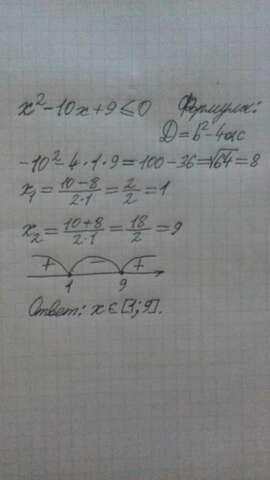 x²-10x+9≤0 Формула:
D=b²-4ac
-10²-4·1·9=100-36=√64=8
x₁=\frac{10-8}{2·1}=\frac{2}{2}=1
x₂=\frac{10+8}{2·1}=\frac{18}{2}=9
+ - +
1 9
Ответ: x∈[1;9].